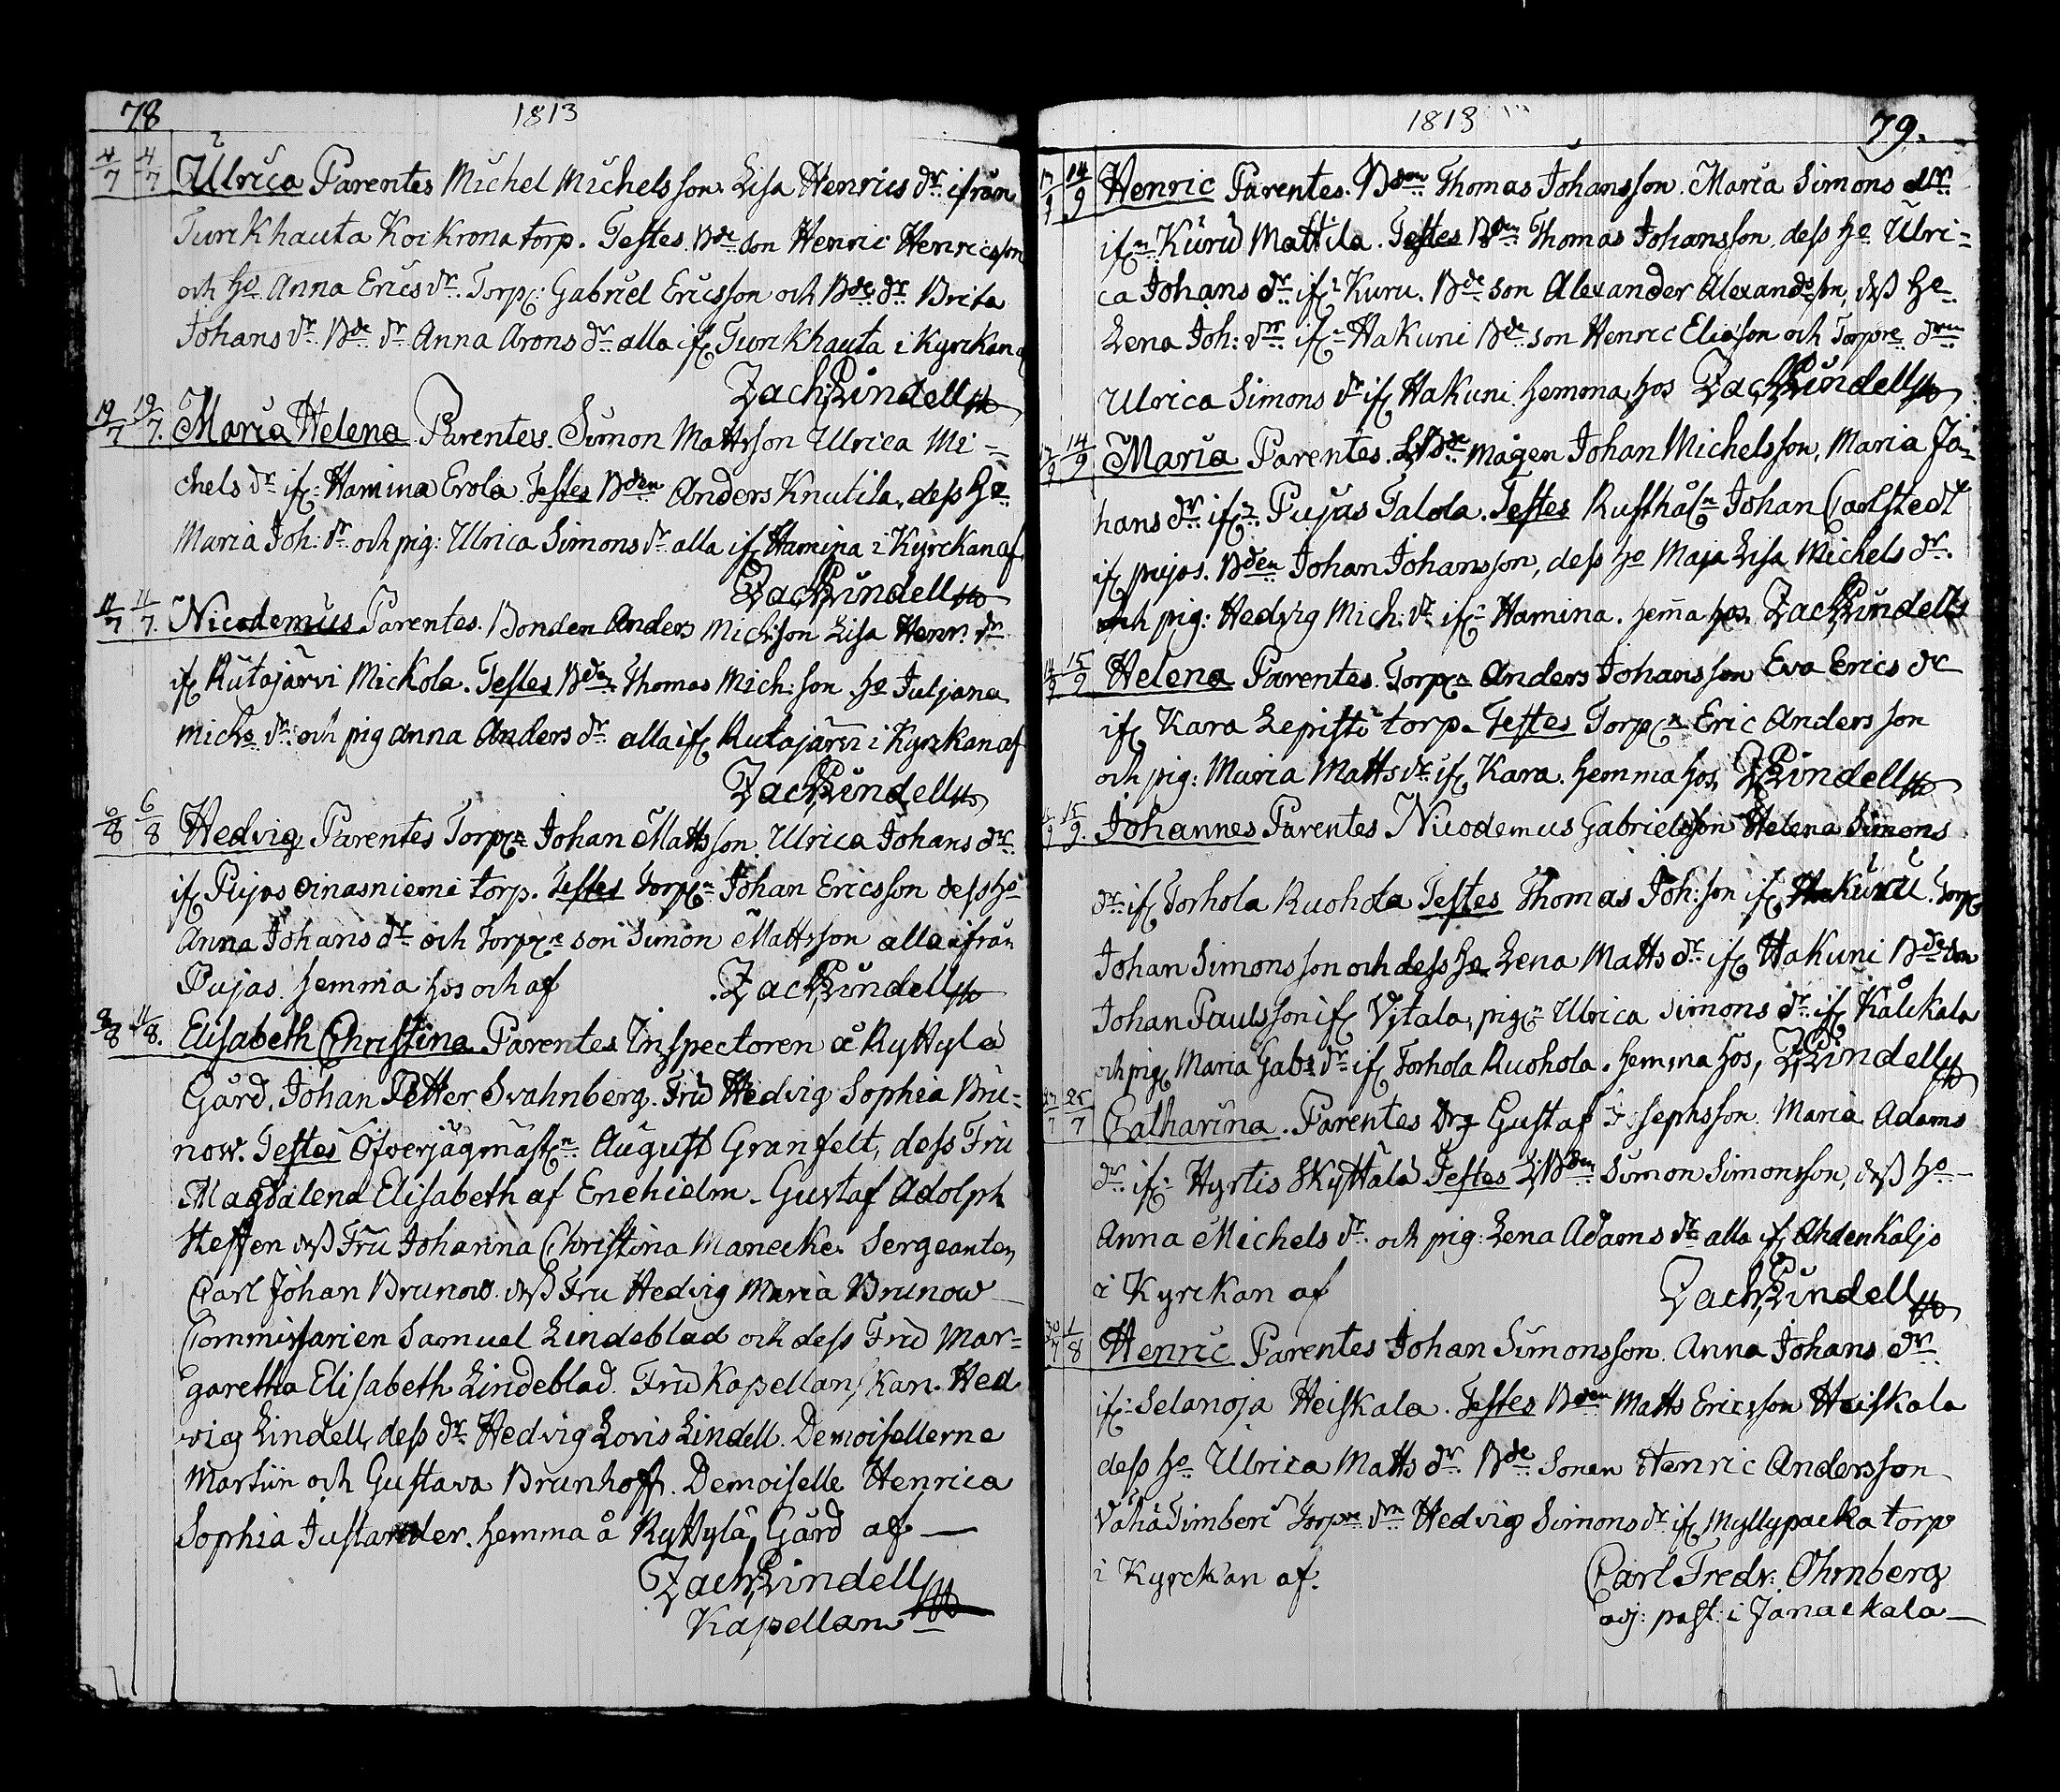 78
1813
4/7 4/7 Ulrica Parentes Michel Michelsson. Lisa Henrics dr. ifrån
Turkhauta Koikrona torp. Testes. Bde son Henric Henricsson
och ho Anna Erics dr. Torp: Gabriel Ericsson och Bde dr Brita
Johans dr. Bde dr Anna Arons dr alla if Turkhauta i Kyrkan af
Zach: Lindell
19/7 19/7. Maria Helena Parentes. Simon Mattsson Ulrica Mi=
chels dr if: Hamina Erola. Testes Bden Anders Knutila, dess ho
Maria Joh: dr och pig: Ulrica Simons dr alla if Hamina i Kyrckan af
Zach Lindell
11/7 11/7. Nicodemus Parentes. Bonden Anders Mich:son Lisa Henr. dr
if Rutajärvi Mickola. Testes Bden Thomas Mich:son ho Juljana
Michs dr och pig Anna Anders dr alla if Rutajärvi i Kyrkan af
Zach Lindell
6/8 6/8 Hedvig Parentes Torpn Johan Mattsson. Ulrica Johans dr
if Pujos Oinasniemi torp. Testes Torpn Johan Ericsson dess ho
Anna Johans dr och Torpn son Simon Mattsson alla ifrån
Pujas. hemma hos och af Zach Lindell
8/8 11/8. Elisabeth Christina Parentes Inspectoren å Ryttylä
Gård, Johan Petter Svahnberg. Fru Hedvig Sophia Bru=
now. Testes Öfwerjägmästn August Granfelt, dess Fru
Magdalena Elisabeth af Enehielm. Gustaf Adolph
Steffen dess Fru Johanna Christina Manecke. Sergeanten
Carl Johan Brunow. dess Fru Hedvig Maria Brunow
Commissarien Samuel Lindeblad och dess Fru Mar=
garetha Elisabeth Lindeblad. Fru Kapellanskan. Hed
vig Lindell, dess dr Hedvig Lovis Lindell. Demoisellerne
Martiin och Gustava Brunhoff. Demoiselle Henrica
Sophia Justander. hemma å Ryttylä Gård af
Zach Lindell
Kapellan
1813
79.
14/9 Henric Parentes. Bden Thomas Johansson. Maria Simons dr.
ifn Kuru Mattila. Testes Bden Thomas Johansson, dess ho Ulri=
ca Johans dr ifn Kuru. Bde son Alexander Alexandsson, dess ho
Lena Joh: dr ifn Hakuni Bde son Henric Eliasson och Torpre drn
Ulrica Simons dr if Hakuni. hemma hos Zach Lindell
14/9 Maria Parentes. Bde mågen Johan Michelsson, Maria Jo=
hans dr ifn Pujas Talola. Testes Rusthåln Johan Carlstedt
if pujos. Bden Johan Johansson, dess ho Maja Lisa Michels dr.
och pig: Hedvig Mich: dr ifn Hamina. hemma hos. Zach Lindell
14/9 15/9 Helena Parentes. Torpn Anders Johansson Eva Erics dr
if Kara Lepistö torp. Testes Torpn Eric Andersson
och pig: Maria Matts dr if Kara. hemma hos, Z Lindell
15/9. Johannes Parentes Nicodemus Gabrielsson Helena Simons
dr if Torhola Ruohola Testes Thomas Joh:son if Kuru. Torp
Johan Simonsson och dess ho Lena Matts dr if Hakuni Bde son
Johan Paulsson if Vitala, pign Ulrica Simons dr if Kålkala
och pig Maria Gabs dr if Torhola Ruohola. hemma hos, Z Lindell
25/7 Catharina. Parentes Drg Gustaf Josephsson. Maria Adams
dr if: Hyrtis Skyttälä Testes Bden Simon Simonsson, dess ho
Anna Michels dr. och pig: Lena Adams dr alla if Ahdenkaljo
i Kyrckan af Zach Lindell
30/7 1/8 Henric Parentes Johan Simonsson. Anna Johans dr.
if: Selanoja Heiskala. Testes Bden Matts Ericsson Heiskala
dess ho Ulrica Matts dr. Bde Sonen Henric Andersson
Vähä Timberi Torpre drn Hedvig Simons dr if Myllypacka torp
i Kyrckan af. Carl Fredr: Ohrnberg
adj: past: i Janackala